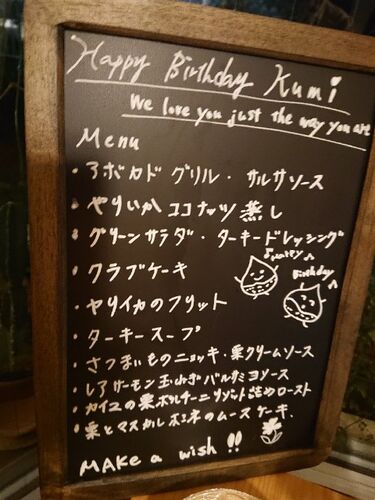 Happy Birthday Kumi
We love you just the way you are
Menu
・アボカド グリル・サルサソース
・やりいか ココナッツ蒸し
・グリーンサラダ・ターキードレッシング
・クラブケーキ
・ヤリイカのフリット
・ターキースープ
・さつまいものニョッキ・栗クリームソース
・レアサーモン玉ねぎバルサミコソース
・カイユの栗ポルチーニリゾット詰めロースト
・栗とマスカルポネのムースケーキ.
Birthday
MAKe a wish !!